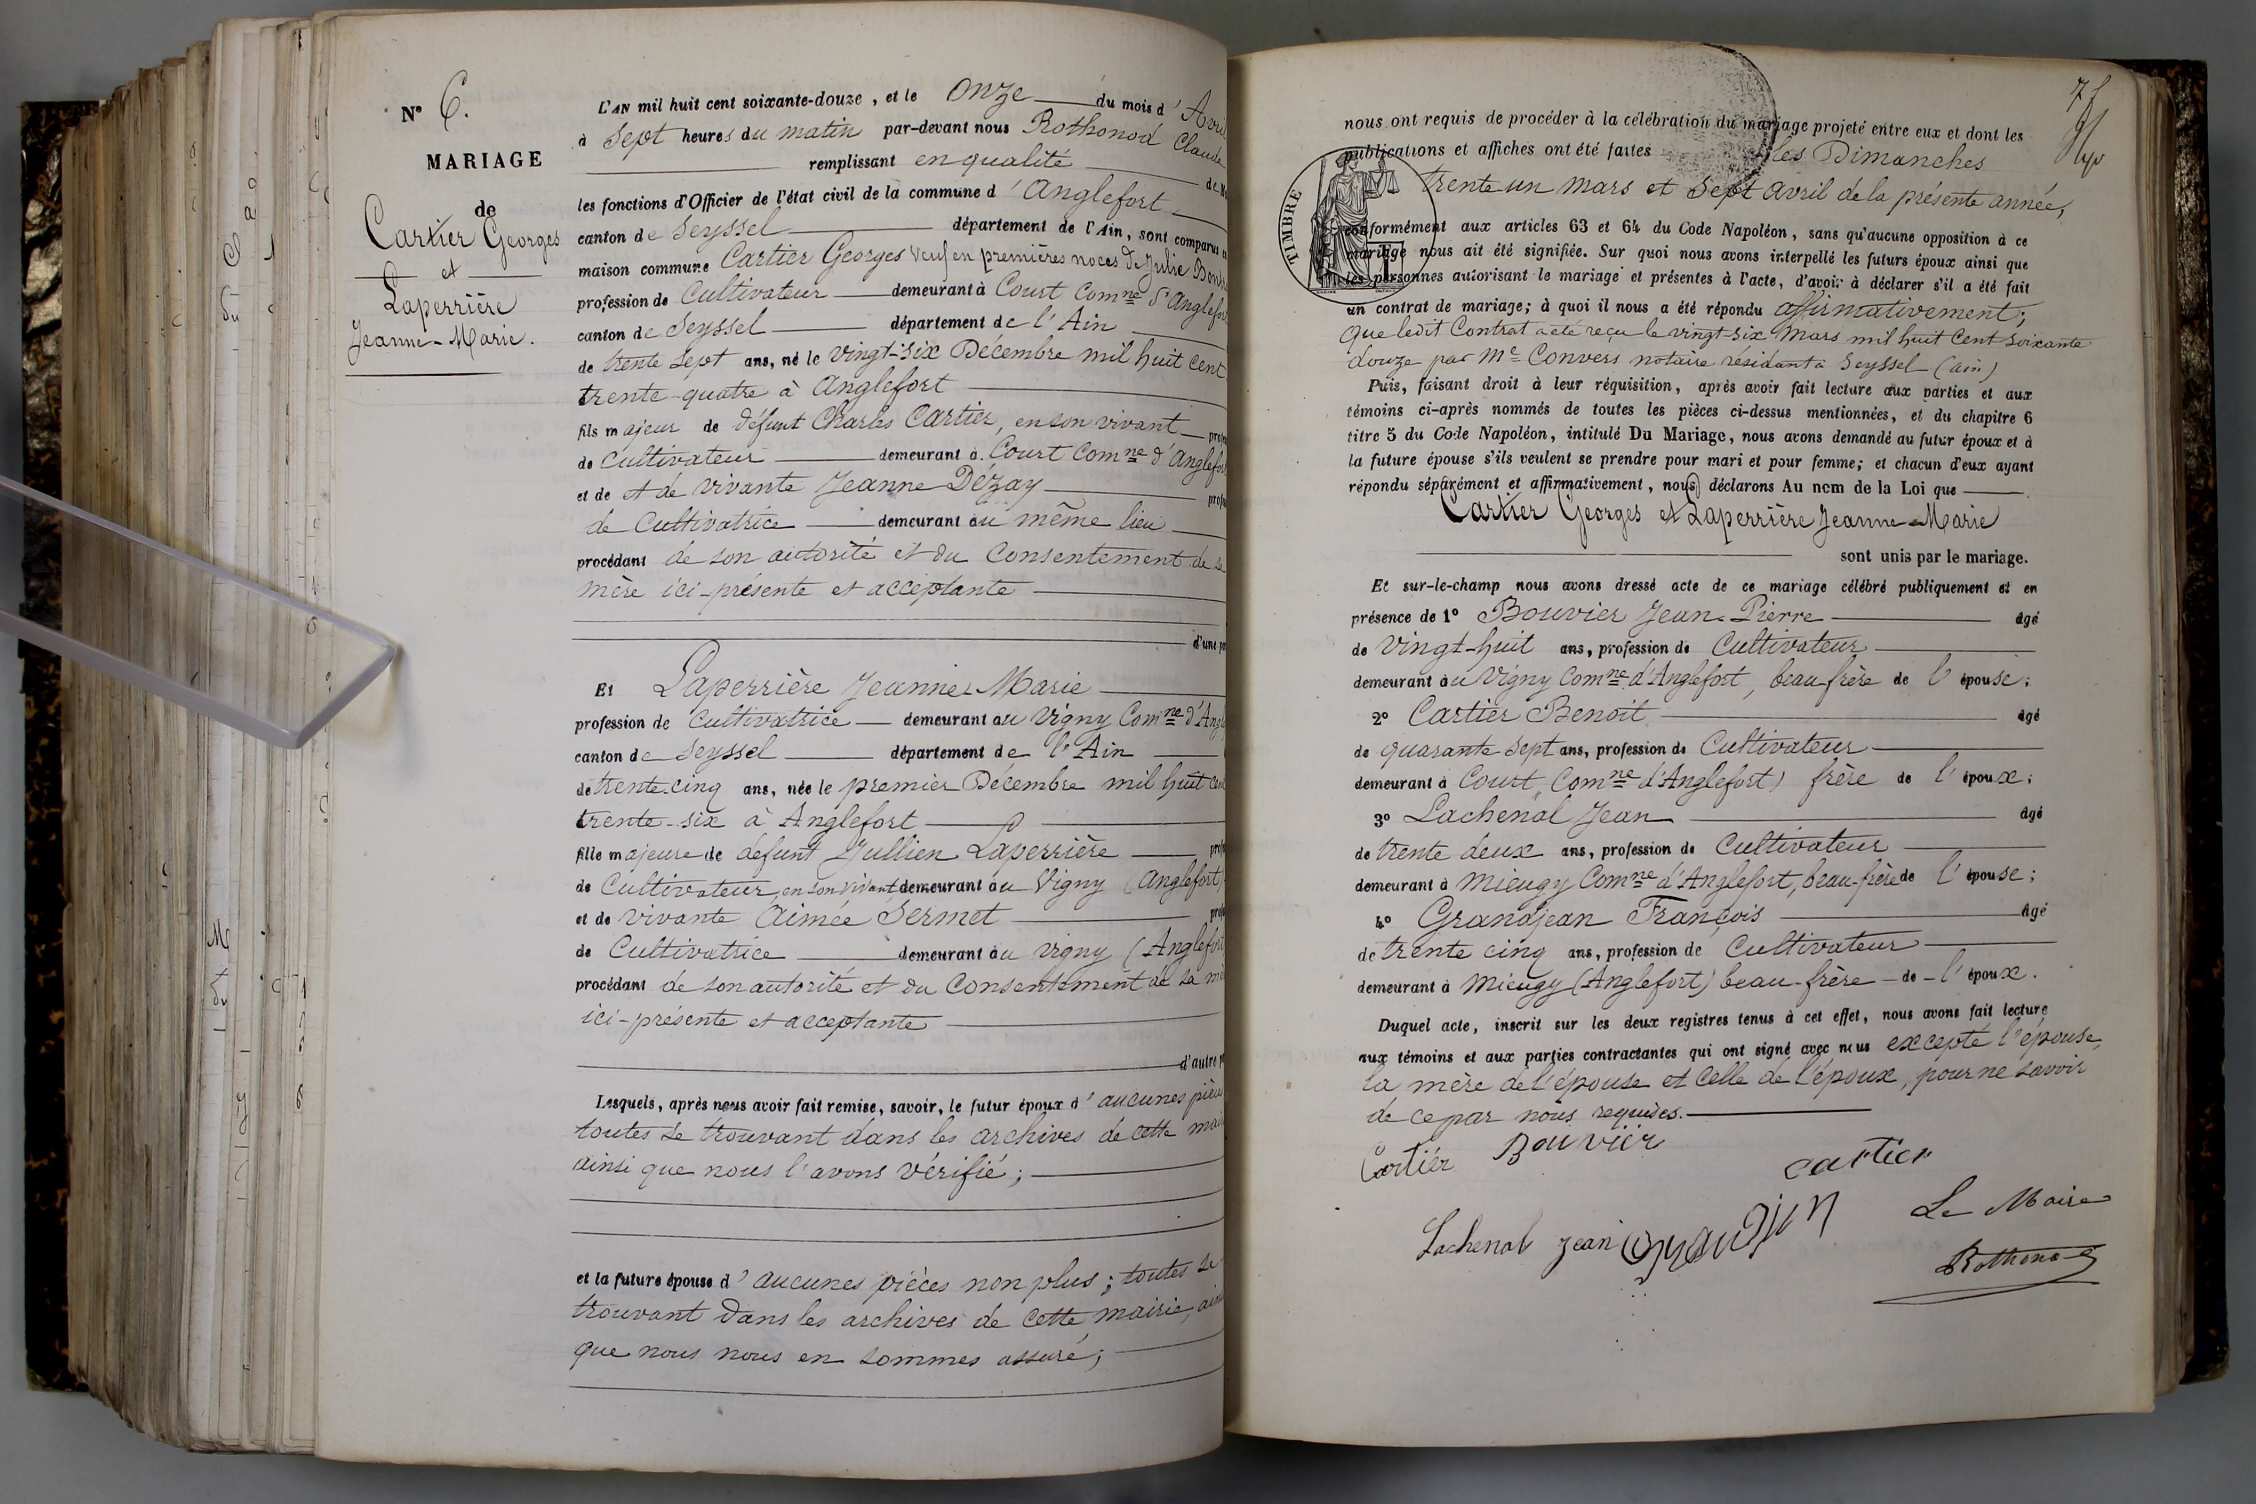 N° 6.
MARIAGE
de
Cartier Georges
et
Laperrière
Jeanne-Marie.
L'AN mil huit cent soixante-douze, et le onze du mois d'Avril
à sept heures du matin par-devant nous Rothonod Claude
remplissant en qualité de
les fonctions d'Officier de l'état civil de la commune d'Anglefort
canton de Seyssel département de l'Ain, sont comparus en
maison commune Cartier Georges veuf en premières noces de Julie
profession de Cultivateur demeurant à Court Comne d'Anglefort
canton de Seyssel département de l'Ain
de trente sept ans, né le vingt-six Décembre mil huit cent
trente-quatre à Anglefort
fils majeur de défunt Charles Cartier, en son vivant
de cultivateur demeurant à Court Comne d'Anglefort
et de et de vivante Jeanne Dézay
de Cultivatrice demeurant au même lieu
procédant de son autorité et du Consentement de sa
mère ici-présente et acceptante
d'une
Et Laperrière Jeanne-Marie
profession de Cultivatrice demeurant au Vigny Comne d'Angle
canton de Seyssel département de l'Ain
de trente-cinq ans, née le premier Décembre mil huit cent
trente-six à Anglefort
fille majeure de défunt Jullien Laperrière
de Cultivateur en son vivant demeurant au Vigny (Anglefort)
et de vivante Aimée Sermet
de Cultivatrice demeurant au Vigny (Anglefort
procédant de son autorité et du Consentement de sa mè
ici-présente et acceptante
d'autre
Lesquels, après nous avoir fait remise, savoir, le futur époux d'aucunes pièces
toutes se trouvant dans les archives de cette mairie
ainsi que nous l'avons vérifié;
et la future épouse d'aucunes pièces non plus; toutes se
trouvant dans les archives de cette mairie, ainsi
que nous nous en sommes assuré;
nous ont requis de procéder à la célébration du mariage projeté entre eux et dont les
publications et affiches ont été faites les Dimanches
trente un mars et sept avril de la présente année,
TIMBRE
conformément aux articles 63 et 64 du Code Napoléon, sans qu'aucune opposition à ce
mariage nous ait été signifiée. Sur quoi nous avons interpellé les futurs époux ainsi que
les personnes autorisant le mariage et présentes à l'acte, d'avoir à déclarer s'il a été fait
un contrat de mariage; à quoi il nous a été répondu affirmativement;
que ledit Contrat a été reçu le vingt-six Mars mil huit Cent soixante
douze par Me Convers notaire résidant à Seyssel (ain)
Puis, faisant droit à leur réquisition, après avoir fait lecture aux parties et aux
témoins ci-après nommés de toutes les pièces ci-dessus mentionnées, et du chapitre 6
titre 5 du Code Napoléon, intitulé Du Mariage, nous avons demandé au futur époux et à
la future épouse s'ils veulent se prendre pour mari et pour femme; et chacun d'eux ayant
répondu séparément et affirmativement, nous déclarons Au nom de la Loi que
Cartier Georges et Laperrière Jeanne-Marie
sont unis par le mariage.
Et sur-le-champ nous avons dressé acte de ce mariage célébré publiquement et en
présence de 1° Bouvier Jean-Pierre âgé
de vingt-huit ans, profession de Cultivateur
demeurant au Vigny Comne d'Anglefort, beau frère de l'épouse;
2° Cartier Benoit âgé
de quarante sept ans, profession de Cultivateur
demeurant à Court, Comne d'Anglefort) frère de l'époux;
3° Lachenal Jean âgé
de trente deux ans, profession de Cultivateur
demeurant à Mieugy Comne d'Anglefort, beau-frère de l'épouse;
4° Grandjean François âgé
de trente cinq ans, profession de Cultivateur
demeurant à Mieugy (Anglefort) beau-frère de l'époux.
Duquel acte, inscrit sur les deux registres tenus à cet effet, nous avons fait lecture
aux témoins et aux parties contractantes qui ont signé avec nous excepté l'épouse,
la mère de l'épouse et celle de l'époux, pour ne savoir
de ce par nous requises.
Cartier Bouvier
cartier
Lachenal Jean
Le Maire
Rothonod